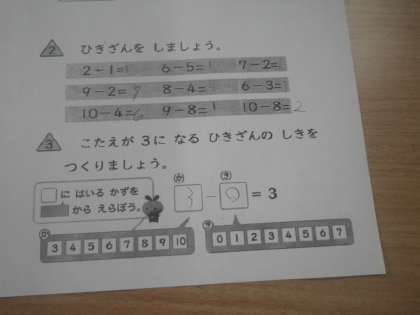 2 ひきざんを しましょう。
2-1=1 6-5=1 7-2=
9-2=7 8-4= 6-3=
10-4=6 9-8=1 10-8=2
3 こたえが 3に なる ひきざんの しきを
つくりましょう。
に はいる かずを
から えらぼう。
か き
3 - 0 = 3
か 3 4 5 6 7 8 9 10
き 0 1 2 3 4 5 6 7